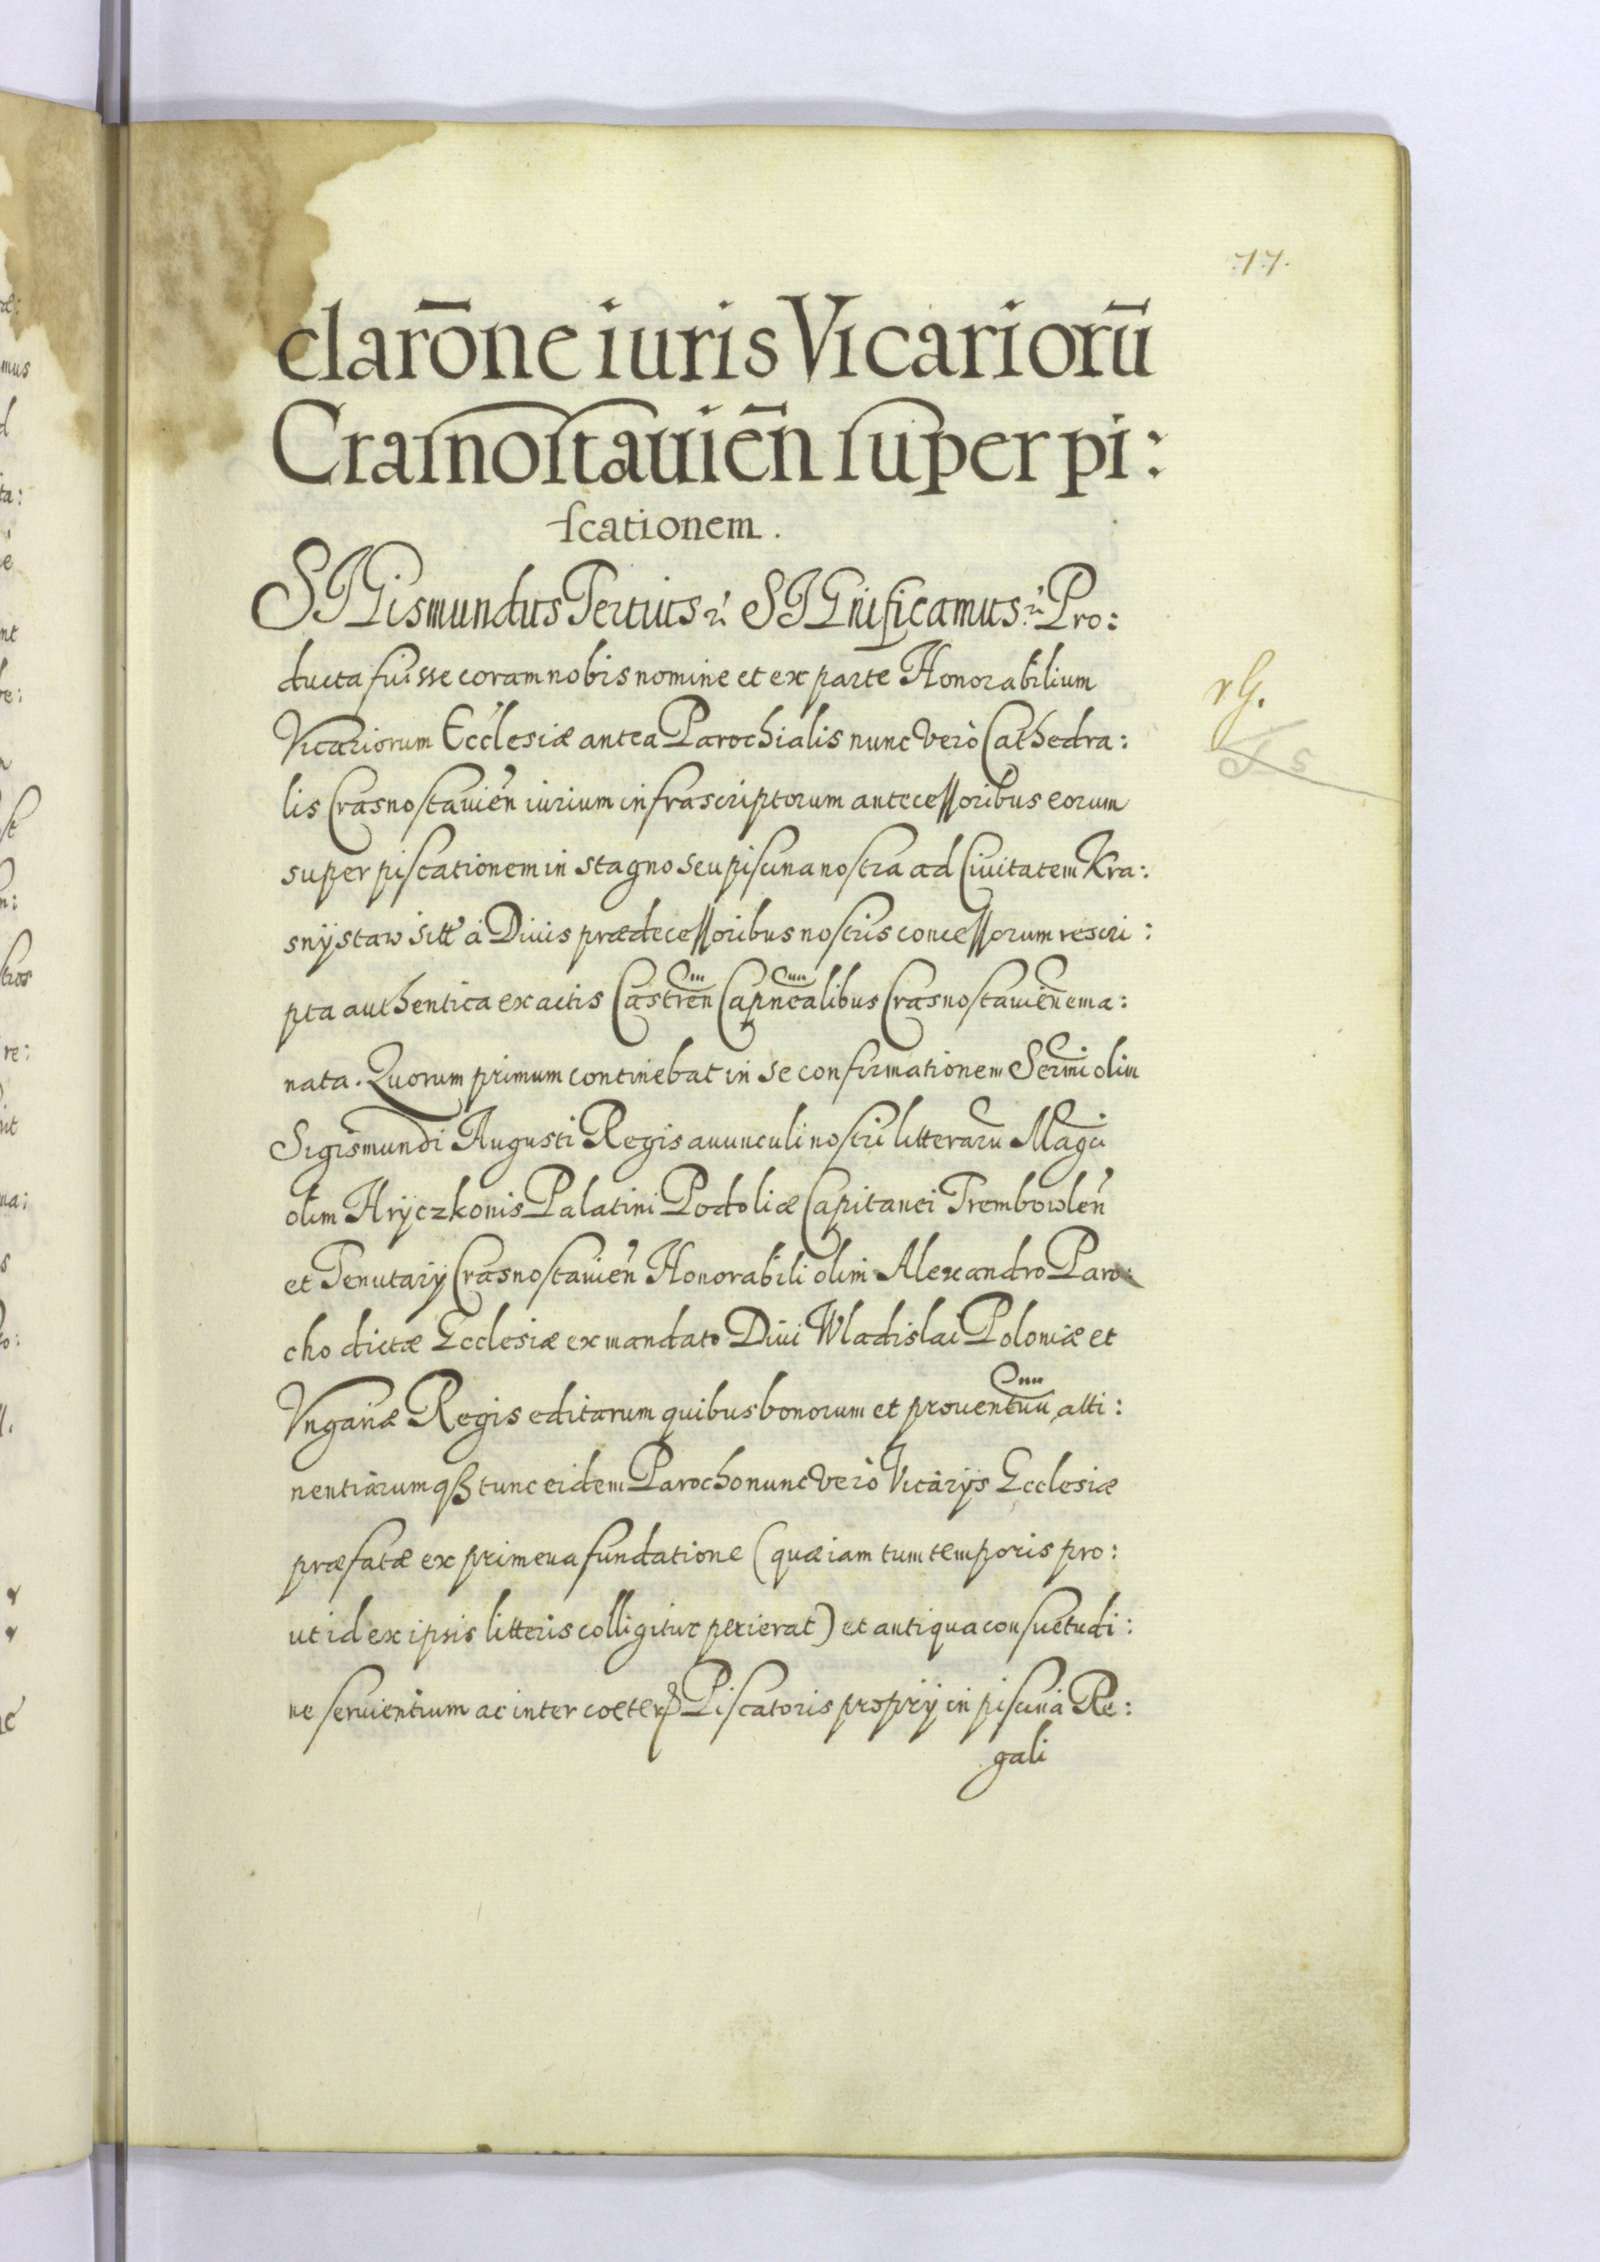 .17.
clarōne iuris Vicariorū
Crasnostauiēn super pi:
scationem.
SIGismundus Tertius &c. SIGnificamus &c. Pro:
ducta fuisse coram nobis nomine et ex parte Honorabilium
Vicariorum Ecclesiæ antea Parochialis nunc verò Cathedra:
lis Crasnostauien̄ iurium infrascriptorum antecessoribus eorum
super piscationem in stagno seu piscina nostra ad Ciuitatem Kra:
snÿstaw sitt̄ à Diuis prædecessoribus nostris concessorum rescri:
pta authentica ex actis Castren̄ Capnealibus Crasnostauien̄ ema:
nata. Quorum primum continebat in se confirmationem Sermi olim
Sigismundi Augusti Regis auunculi nostri litterarū Magci
olim Hrÿczkonis Palatini Podoliæ Capitanei Trembowlen̄
et Tenutarÿ Crasnostauien̄ Honorabili olim Alexandro Paro:
cho dictæ Ecclesiæ ex mandato Diui Wladislai Poloniæ et
Vngariæ Regis editarum quibus bonorum et prouentuu, atti:
nentiarumqȝ tunc eidem Parocho nunc verò Vicarÿs Ecclesiæ
præfatæ ex primeua fundatione (quæ iam tum temporis pro:
ut id ex ipsis litteris colligitur perierat) et antiqua consuetudi:
ne seruientium ac inter coeterꝝ Piscatoris proprÿ in piscina Re:
gali